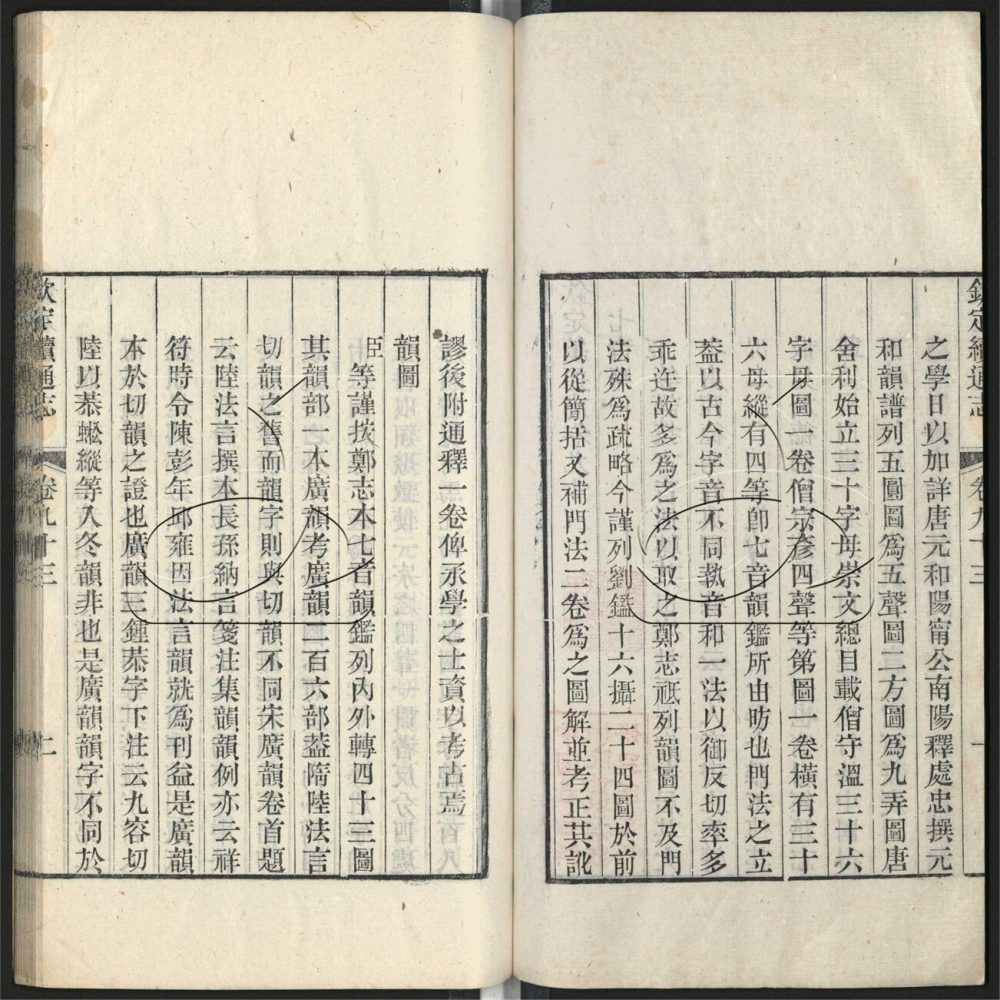 欽定續通志
卷九十三
一
之學日以加詳唐元和陽甯公南陽釋處忠撰元
和韻譜列五圓圖爲五聲圖二方圖爲九弄圖唐
舍利始立三十字母崇文總目載僧守溫三十六
字母圖一卷僧宗彥四聲等第圖一卷橫有三十
六母縱有四等卽七音韻鑑所由昉也門法之立
葢以古今字音不同執音和一法以御反切率多
乖迕故多爲之法以取之鄭志祗列韻圖不及門
法殊爲疏略今謹列劉鑑十六攝二十四圖於前
以從簡括又補門法二卷爲之圖解並考正其訛
謬後附通釋一卷俾承學之士資以考古焉
韻圖
臣等謹按鄭志本七音韻鑑列內外轉四十三圖
其韻部一本廣韻考廣韻二百六部葢隋陸法言
切韻之舊而韻字則與切韻不同宋廣韻卷首題
云陸法言撰本長孫納言箋注集韻韻例亦云祥
符時令陳彭年邱雍因法言韻就爲刊益是廣韻
本於切韻之證也廣韻三鍾恭字下注云九容切
陸以恭蜙縱等入冬韻非也是廣韻韻字不同於
欽定續通志
卷九十三
二